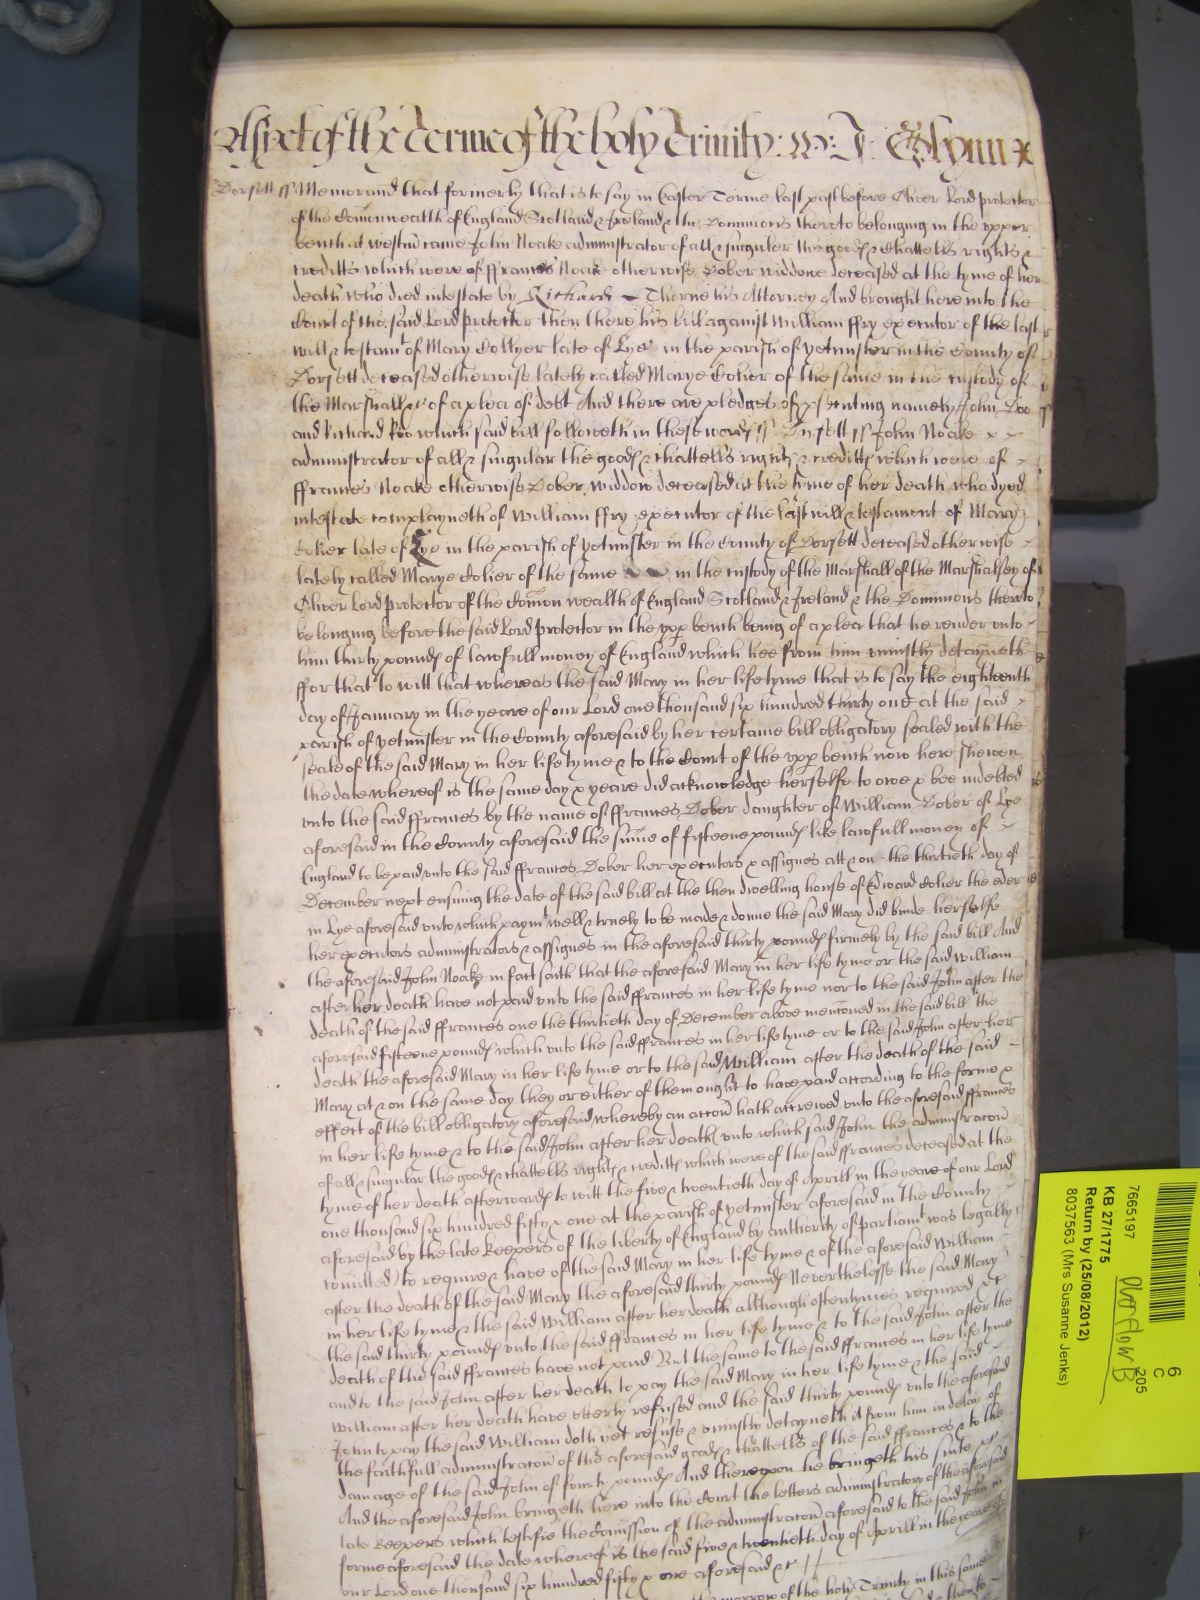 As yet of the Terme of the holy Trinity: W: J: Glynn
Dorsett ss Memorand that formerly that is to say in Easter Terme last past before Oliver Lord Protector
of the Com̄onwealth of England Scotland & Ireland & the Dominions thereto belonging in the vpper
bench at westm̄ came John Noake administrator of all & singuler the goods & Chattells rights &
creditts which were of ffrances Noake otherwise Dober widdow deceased at the tyme of her
death who died intestate by Richard Thorne his Attorney And brought here into the
Court of the said Lord Protector then there his bill against William ffry executor of the last
will & testamt of Mary Collyer late of Lye in the parish of yetminster in the County of
Dorsett deceased otherwise lately called Marye Colier of the same in the custody of
the Marshall &c of a plea of debt And there are pledges of prosecuting namely John Doo
and Richard Roo which said bill followeth in these words ss Dorsett ss John Noake
administrator of all & singular the goods & chattells rights & creditts which were of
ffrances Noake otherwise Dober widdow deceased at the tyme of her death who dyed
intestate complayneth of William ffry executor of the last will & testament of Mary
Colier late of Lye in the parish of yetminster in the County of Dorsett deceased otherwise
lately called Marye Colier of the same in the custody of the Marshall of the Marshalsey of
Oliver Lord Protector of the Com̄on wealth of England Scotland & Ireland & the Dominions thereto
belonging before the said Lord Protector in the vpp bench being of a plea that he render vnto
him thirty pounds of lawfull money of England which hee from him vniustly detayneth
ffor that to witt that whereas the said Mary in her life tyme that is to say the eighteenth
day of January in the yeare of our Lord one thousand six hundred thirty one at the said
parish of yetminster in the County aforesaid by her certaine bill obligatory sealed with the
seale of the said Mary in her life tyme & to the Court of the vpp bench now here shewen
the date whereof is the same day & yeare did acknowledge herselfe to owe & bee indebted
vnto the said ffrances by the name of ffrances Dober daughter of William Dober of Lye
aforesaid in the County aforesaid the sum̄e of fifteene pounds like lawfull money of
England to be paid vnto the said ffrances Dober her executors & assignes att & on the thirtieth day of
December next ensuing the date of the said bill at the then dwelling house of Edward Colier the elder
in Lye aforesaid vnto which paymt well & truely to be made & donne the said Mary did binde herselfe
her executors administrators & assignes in the aforesaid thirty pounds firmely by the said bill And
the aforesaid John Noake in fact saith that the aforesaid Mary in her life tyme or the said William
after her death have not paid vnto the said ffrances in her life tyme nor to the said John after the
death of the said ffrances one the thirtieth day of December above menc̄oned in the said bill the
aforesaid fifteene pounds which vnto the said ffrances in her life tyme or to the said John after her
death the aforesaid Mary in her life tyme or to the said William after the death of the said
Mary at & on the same day they or either of them ought to have paid according to the forme &
effect of the bill obligatory aforesaid whereby an acc̄on hath accrewed vnto the aforesaid ffrances
in her life tyme & to the said John after her death vnto which said John the administrac̄on
of all & singular the goods & chattells rights & creditts which were of the said ffrances deceased at the
tyme of her death afterwards to witt the five & twentieth day of Aprill in the yeare of our Lord
one thousand six hundred fifty & one at the parish of yetminster aforesaid in the County
aforesaid by the late Keepers of the liberty of England by authority of parliamt was legally
com̄itted) to require & have of the said Mary in her life tyme & of the aforesaid William
after the death of the said Mary the aforesaid thirty pounds Neverthelesse the said Mary
in her life tyme & the said William after her death although oftentymes required &c
the said thirty pounds vnto the said ffrances in her life tyme & to the said John after the
death of the said ffrances have not paid But the same to the said ffrances in her life tyme
and to the said John after her death to pay the said Mary in her life tyme & the said
William after her death have vtterly refused and the said thirty pounds vnto the aforesaid
John to pay the said William doth yet refuse & vniustly detayneth it from him in delay of
the faithfull administrac̄on of the aforesaid goods & chattells of the said ffrances & to the
damage of the said John of fourty pounds And therevpon he bringeth his suite &c
And the aforesaid John bringeth here into the Court the letters administratory of the aforesaid
late Keepers which testifie the Com̄ission of the administrac̄on aforesaid to the said John in
forme aforesaid the date whereof is the said five & twentieth day of Aprill in the yeare of
our Lord one thousand six hundred fifty & one aforesaid &c
morrow of the holy Trinity in this same
6
C
205
7665197
Overflow B
KB 27/1775
Return by (25/08/2012)
8037563 (Mrs Susanne Jenks)